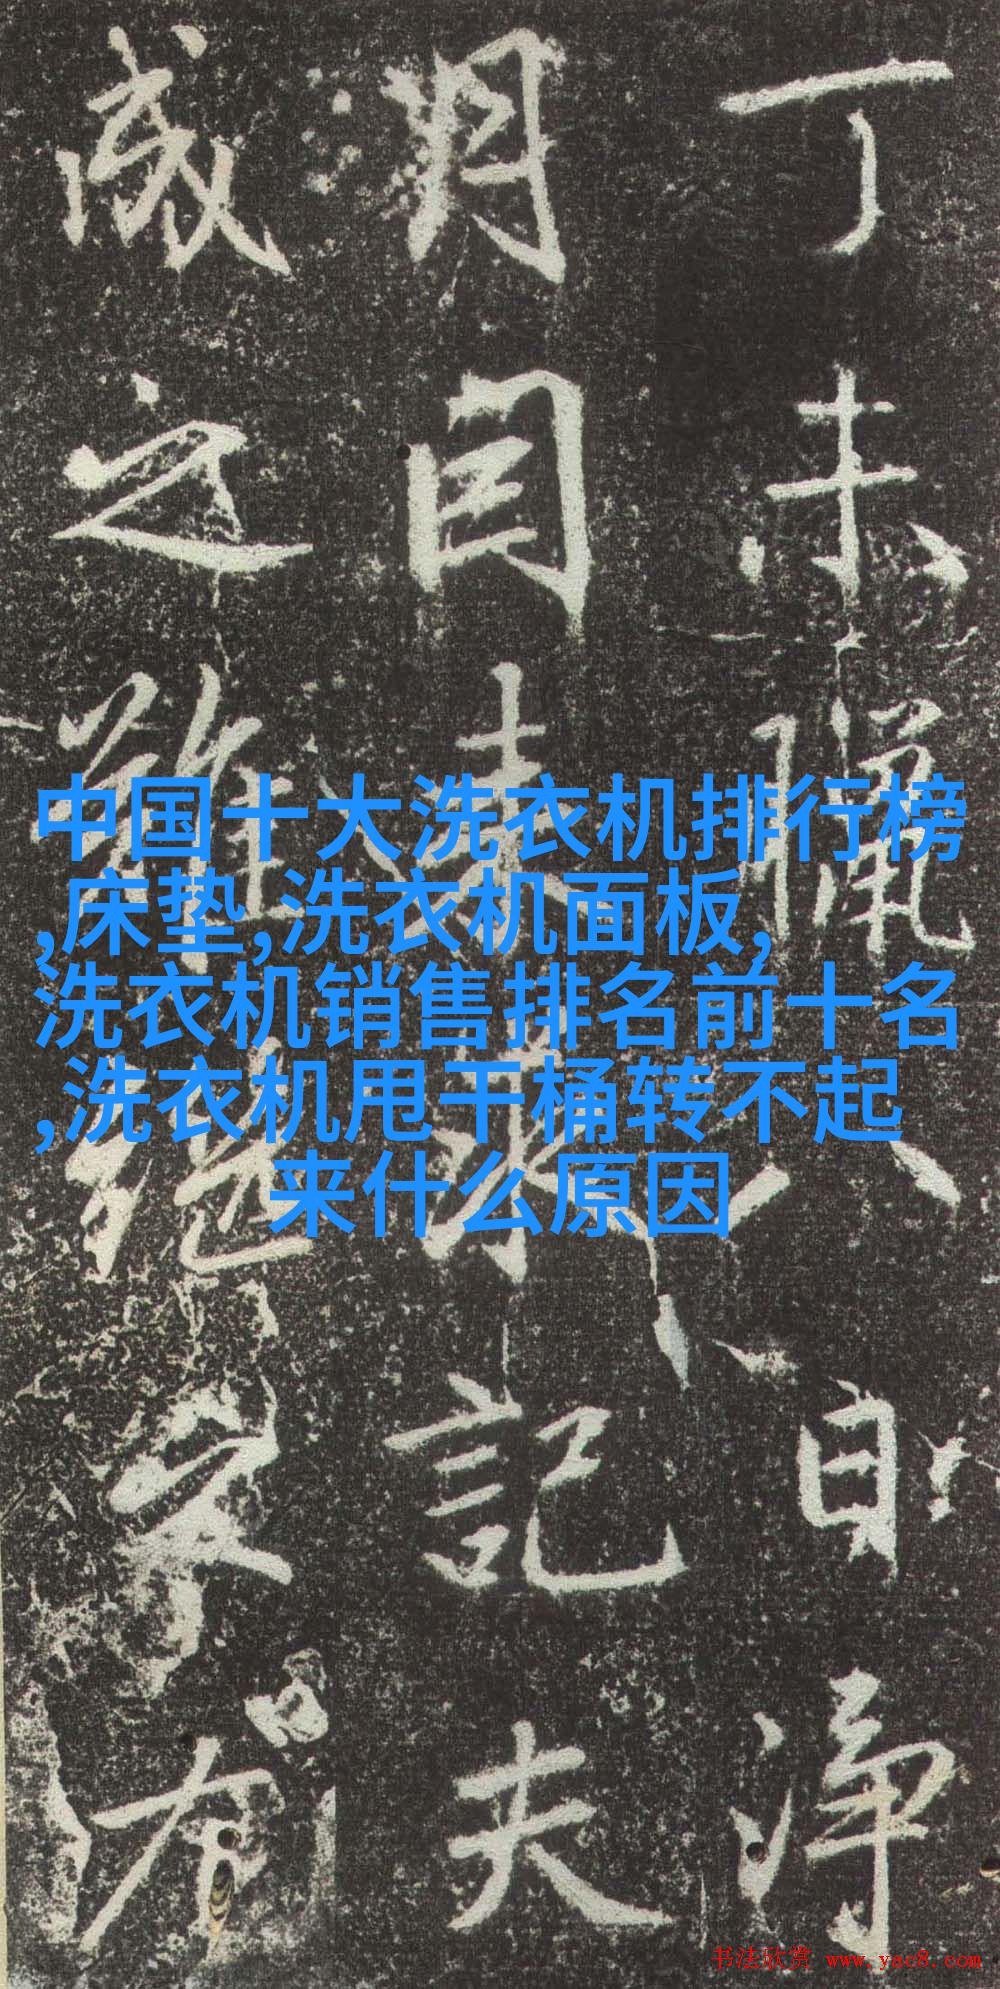 丁未臘八日净
月因趙來記夫
成之雖絕筆有
中国十大洗衣机排行榜
,床垫,洗衣机面板,
洗衣机销售排名前十名
,洗衣机甩干桶转不起
来什么原因
书法欣赏 www.yac8.com